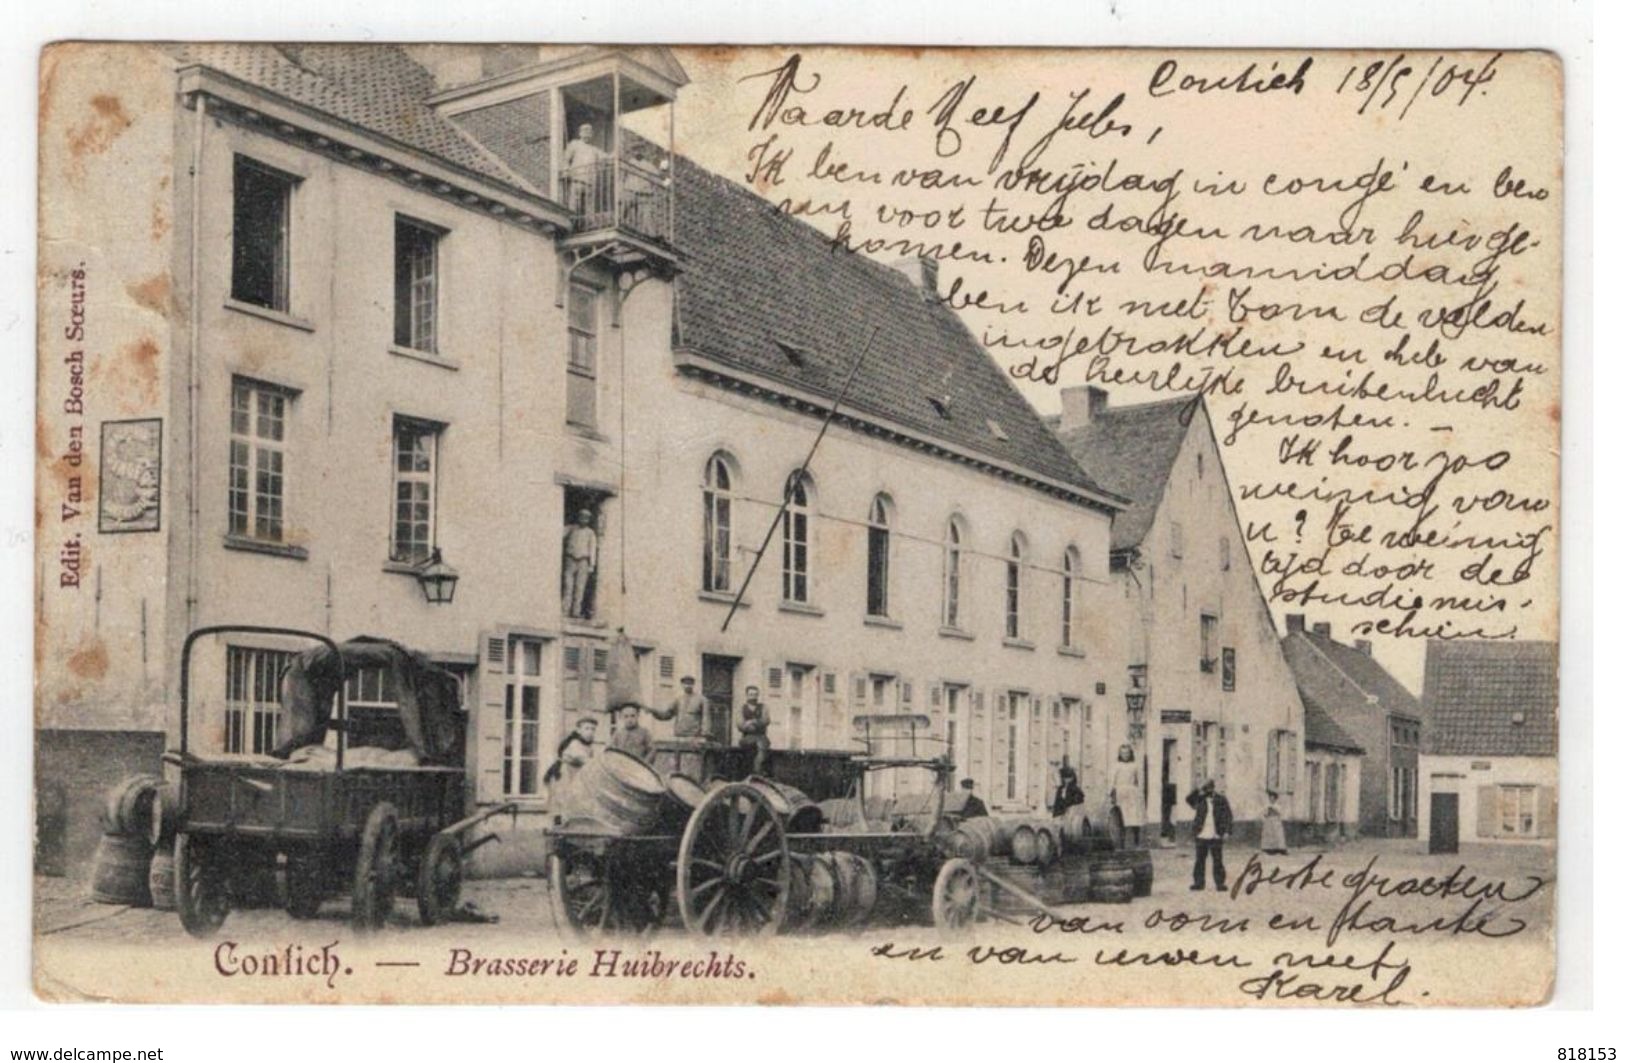 Contich 18/5/04.
Waarde Neef Jules,
Ik ben van vrijdag in congé en ben
nu voor twee dagen naar hier ge-
komen. Dezen namiddag
ben ik met Tom de velden
ingetrokken en heb van
de heerlijke buitenlucht
genoten. _
Ik hoor zoo
weinig van
u? Te weinig
tijd door de
studie mis-
schien.
Beste groeten
van oom en tante
en van uwen neef
Karel.
Edit. Van den Bosch Sœurs.
Contich. — Brasserie Huibrechts.
www.delcampe.net
818153